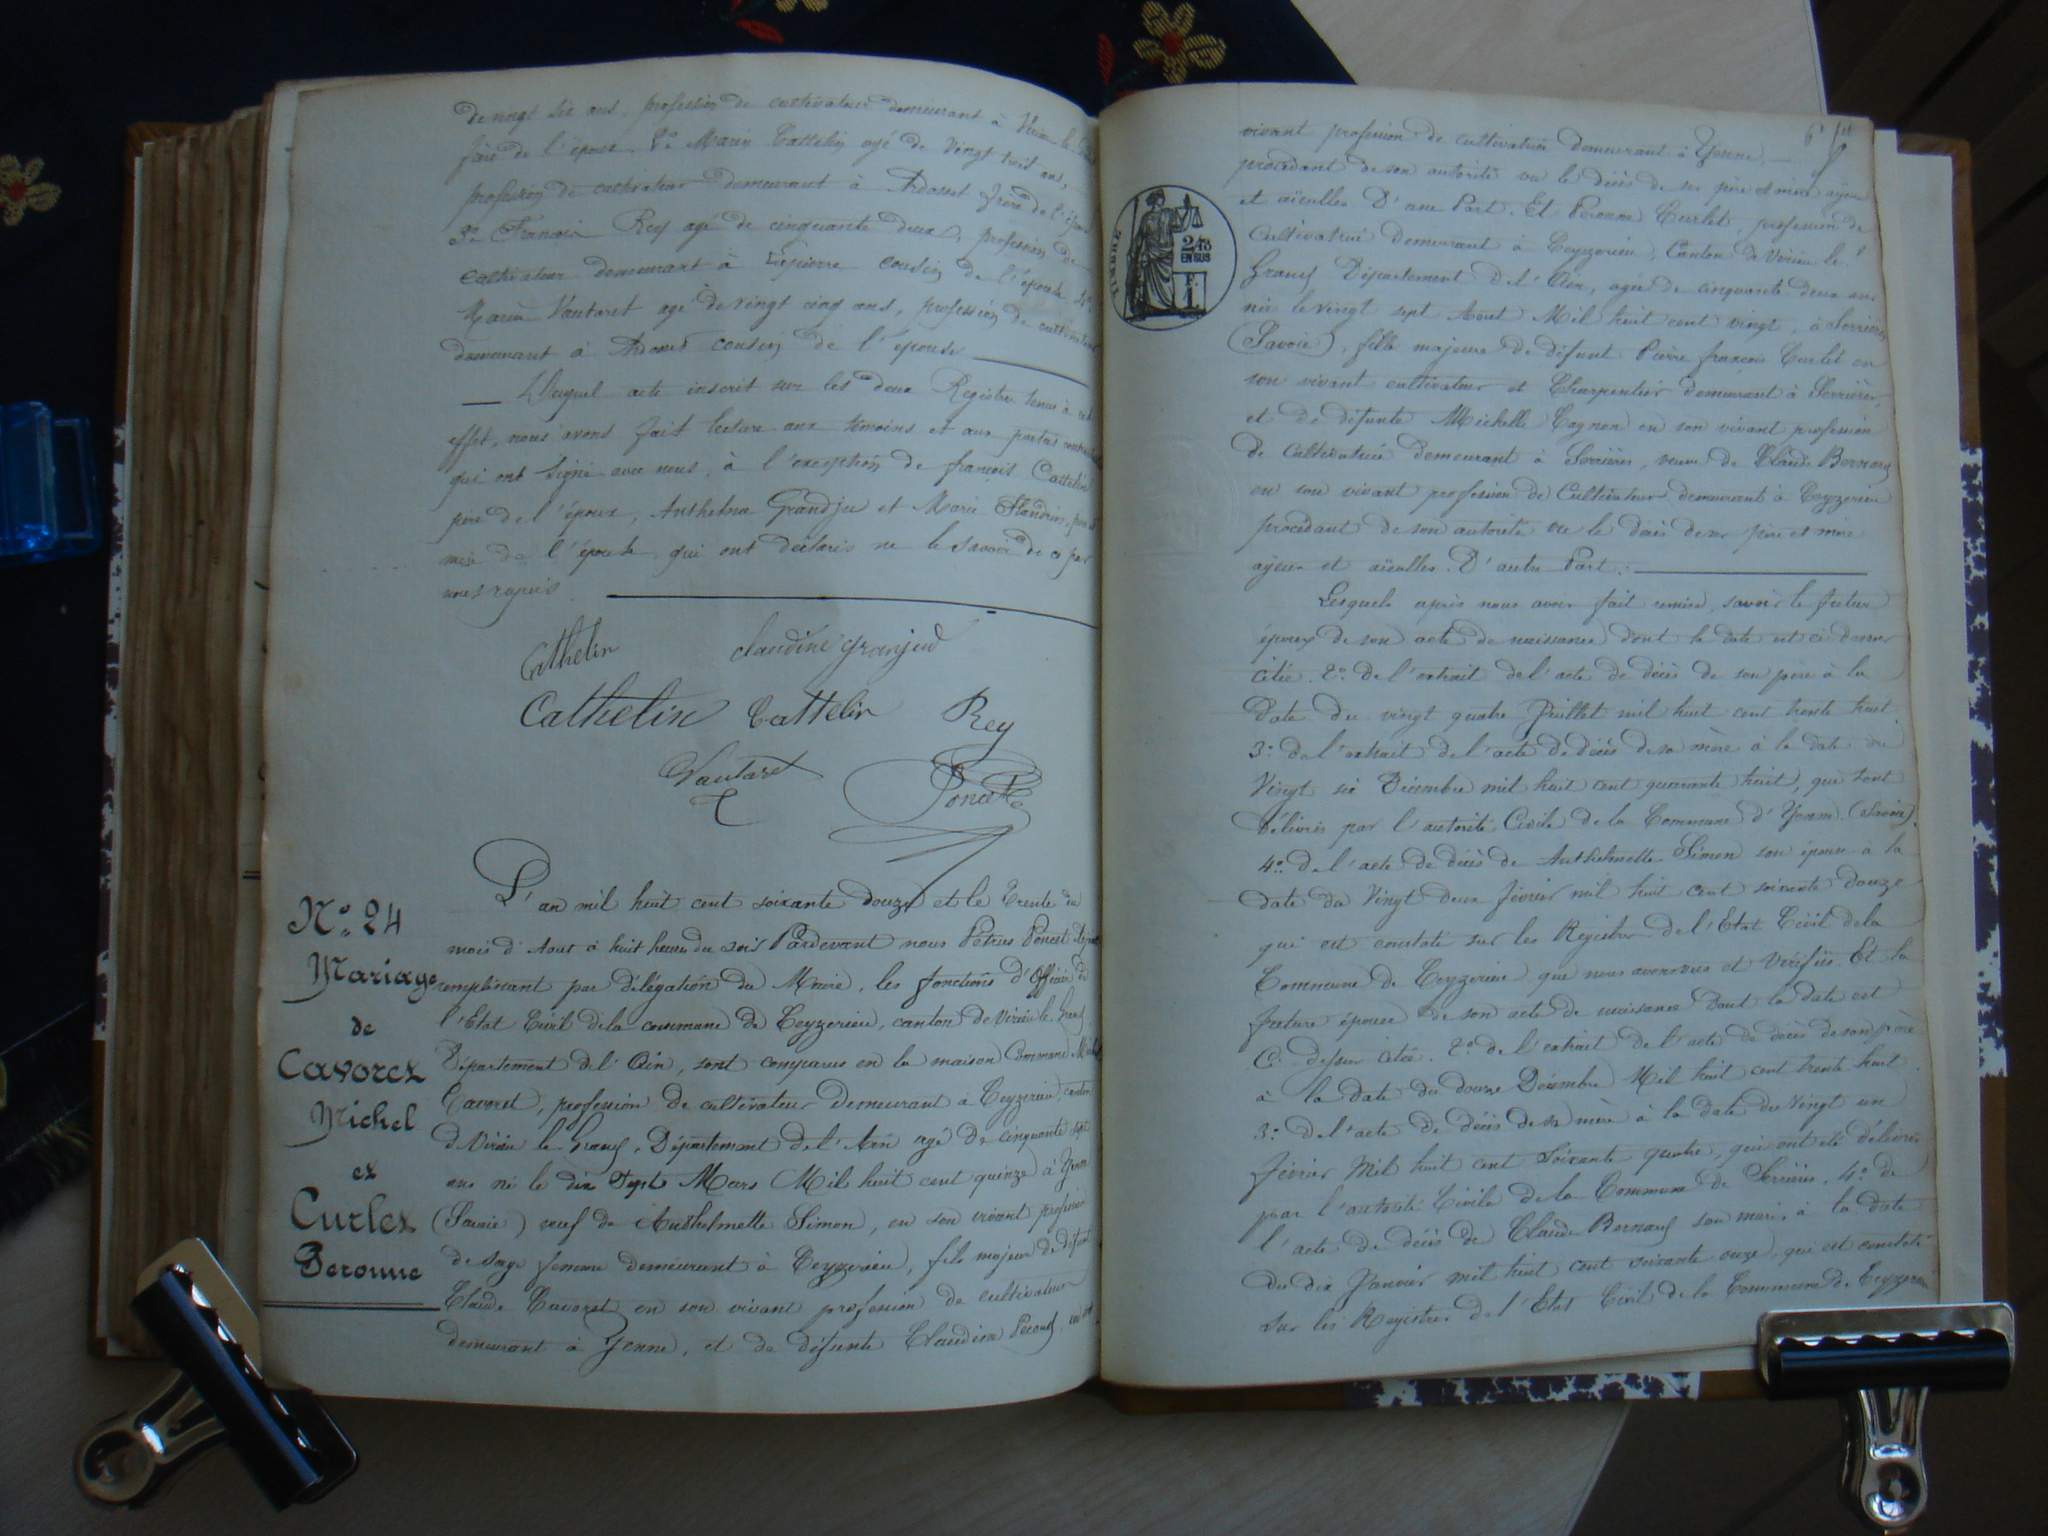 de vingt six ans, profession de cultivateur demeurant à Virieu le
frère de l'époux 2° Marin Cattelin agé de vingt huit ans,
profession de cultivateur demeurant à Ardosset frère de l'époux
3° François Rey agé de cinquante deux, profession de
cultivateur demeurant à cousin de l'épouse 4°
Marin Vautaret agé de vingt cinq ans, profession de cultivateur
demeurant à cousin de l'épouse
Duquel acte inscrit sur les deux Registres tenus à cet
effet, nous avons fait lecture aux témoins et aux parties
qui ont signé avec nous, à l'exception de françois Cattelin
père de l'époux, Anthelme Grandjea et Marie Flandrin,
mère de l'épouse qui ont déclaré ne le savoir de ce par
nous requis
Cathelin claudine granjea
Cathelin Cattelin Rey
Vautaret Poncet
N° 24
Mariage
de
Cavoret
Michel
et
Curlet
Peronne
L'an mil huit cent soixante douze et le Trente du
mois d'Aout à huit heures du soir Pardevant nous Pétrus Poncet
remplissant par délégation du Maire, les fonctions d'Officier de
l'Etat Civil de la commune de Ceyzerieu, canton de Virieu le Grand
Département de l'Ain, sont comparus en la maison Commune Michel
Cavoret, profession de cultivateur demeurant à Ceyzerieu, canton
de Virieu le Grand, Département de l'Ain agé de cinquante sept
ans né le dix Sept Mars Mil huit cent quinze à Yenne
(Savoie) veuf de Anthelmette Simon, en son vivant profession
de sage femme demeurant à Ceyzerieu, fils majeur de défunt
Claude Cavoret en son vivant profession de cultivateur
demeurant à Yenne, et de défunte Claudine
6
vivant profession de cultivatrice demeurant à Yenne
procédant de son autorité vu le décès de ses père et mère ayeux
et aïeulles D'une Part. Et Peronne Curlet, profession de
Cultivatrice demeurant à Ceyzerieu, Canton de Virieu le
Grand Département de l'Ain, agée de cinquante deux ans
née le vingt sept Aout Mil huit cent vingt, à Serrières
(Savoie), fille majeure de défunt Pierre françois Curlet en
son vivant cultivateur et Charpentier demeurant à Serrières,
et de défunte Michelle Cagnon en son vivant profession
de Cultivatrice demeurant à Serrières, veuve de Claude Bernard
en son vivant profession de Cultivateur demeurant à Ceyzerieu
procédant de son autorité vu le décès de ses père et mère
ayeux et aïeulles. D'autre Part :
Lesquels après nous avoir fait remise, savoir le futur
époux de son acte de naissance dont la date est ci dessus
citée. 2° de l'extrait de l'acte de décès de son père à la
Date du vingt quatre Juillet mil huit cent trente huit
3° de l'extrait de l'acte de décès de sa mère à la date du
Vingt six Décembre mil huit cent quarante huit, qui sont
délivrés par l'autorité Civile de la Commune d'Yenne (Savoie).
4° de l'acte de décès de Anthelmette Simon son épouse à la
date du Vingt deux février mil huit cent soixante douze
qui est constaté sur les Registres de l'Etat Civil de la
Commune de Ceyzerieu que nous avons vus et Vérifiés. Et la
future épouse de son acte de naissance dont la date est
Ci dessus citée. 2° de l'extrait de l'acte de décès de son père
à la date du douze Décembre Mil huit cent trente huit
3° de l'acte de décès de sa mère à la date du Vingt un
février Mil huit cent Soixante quatre, qui ont été délivrés
par l'autorité Civile de la Commune de Serrières. 4° de
l'acte de décès de Claude Bernard son mari, à la date
du dix Janvier mil huit cent soixante onze, qui est constaté
sur les Registres de l'Etat Civil de la Commune de Ceyzerieu
TIMBRE
2/10
EN SUS
F.
1